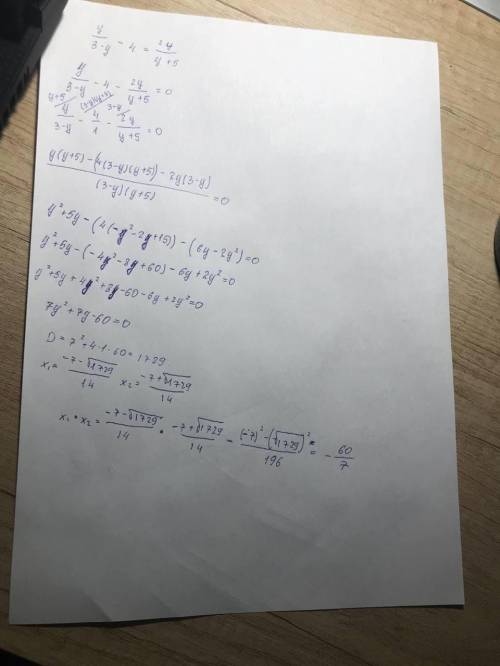 y/(3-y) - 4 = 2y/(y+5)
y/(3-y) - 4 - 2y/(y+5) = 0
y+5 (3-y)(y+5) 3-y
y/(3-y) - 4/1 - 2y/(y+5) = 0
(y(y+5) - (4(3-y)(y+5)) - 2y(3-y))/((3-y)(y+5)) = 0
y²+5y - (4(-y²-2y+15)) - (6y-2y²) = 0
y²+5y - (-4y²-8y+60) - 6y+2y² = 0
y²+5y+4y²+8y-60-6y+2y²=0
7y²+7y-60=0
D = 7²+4·1·60 = 1729
x₁ = (-7-√1729)/14 x₂ = (-7+√1729)/14
x₁ · x₂ = (-7-√1729)/14 · (-7+√1729)/14 = ((-7)²-(√1729)²)/196 = -60/7